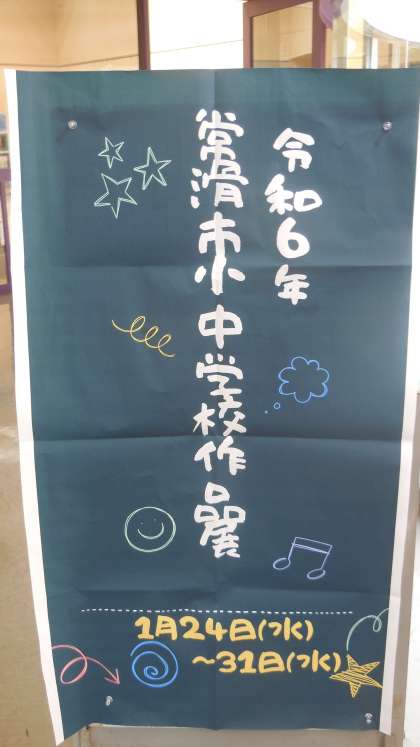 令和6年
常滑市小中学校作品展
1月24日(水)
～31日(水)